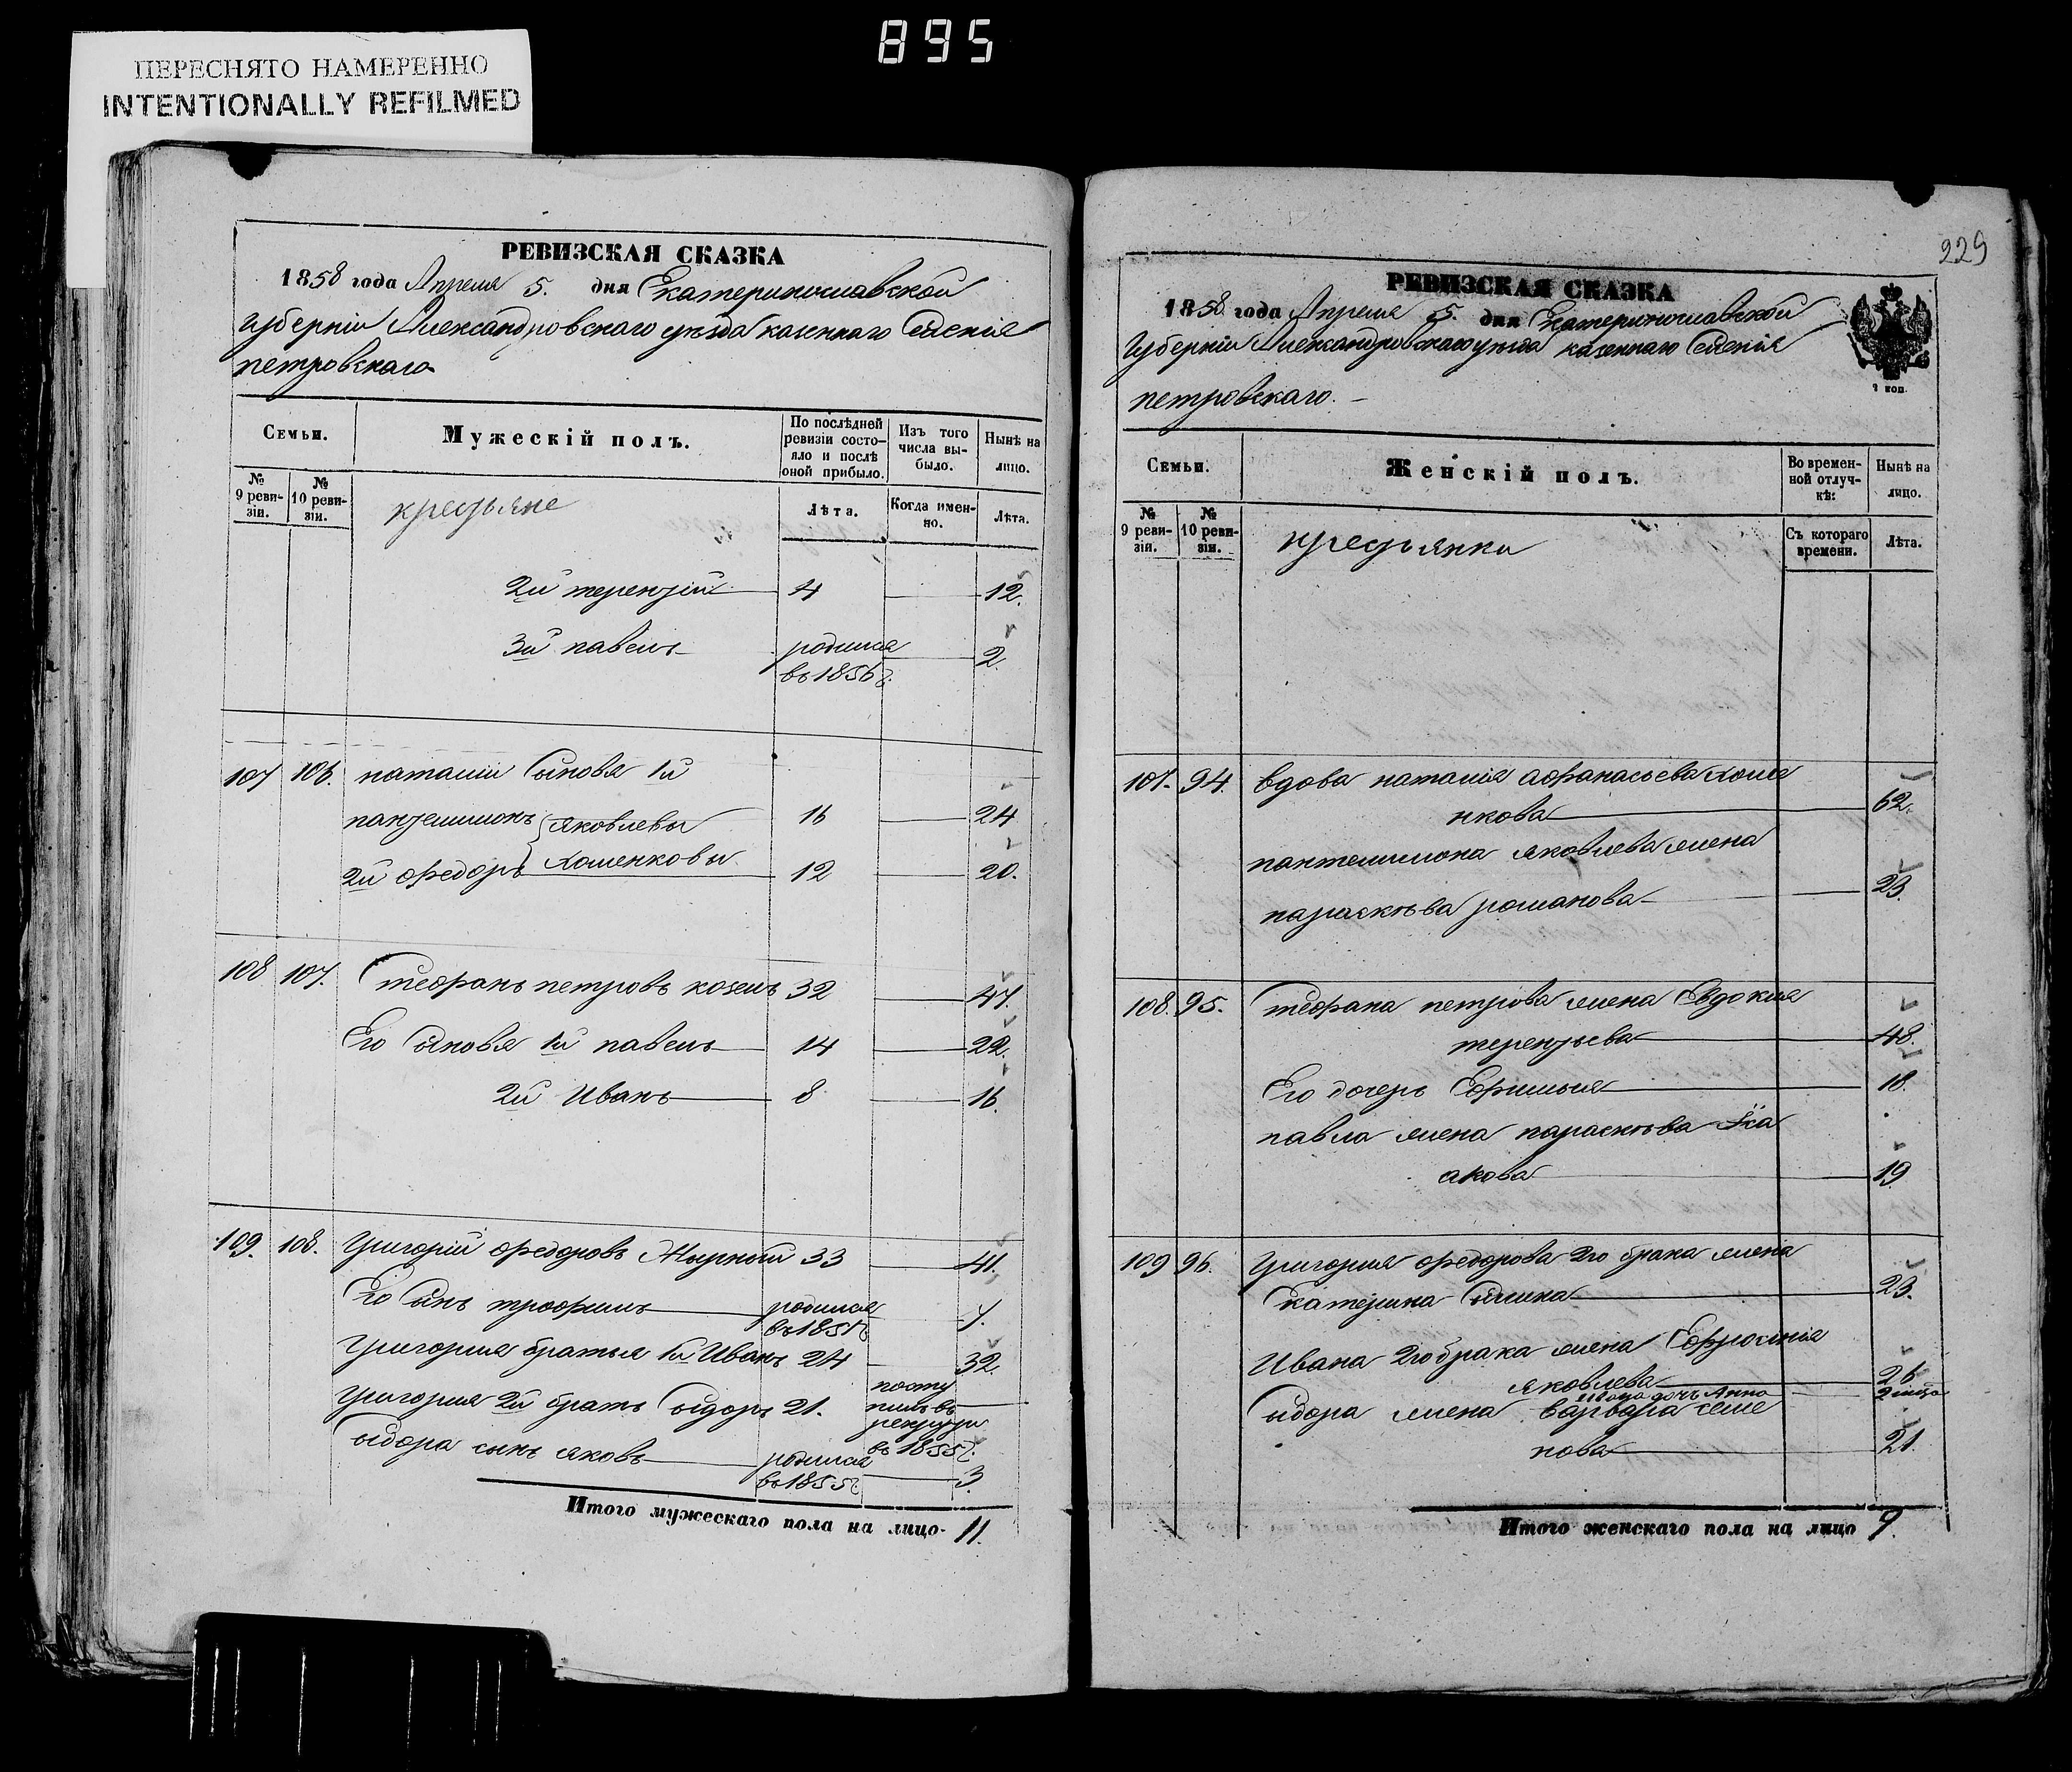 895
ПЕРЕСНЯТО НАМЕРЕННО
INTENTIONALLY REFILMED
РЕВИЗСКАЯ СКАЗКА
1858 года Апреля 5. дня Екатеринославской
губерніи Александровскаго уѣзда казеннаго Селенія
петровскаго
Семьи.
Мужескій полъ.
По послѣдней ревизіи состояло и послѣ оной прибыло.
Изъ того числа выбыло.
Нынѣ на лицо.
№ 9 ревизіи.
№ 10 ревизіи.
крестьяне
Лѣта.
Когда именно.
Лѣта.
2й терентій 4 12.
3й павелъ родился 2.
въ 1856 г.
107 106. наталіи Сыновя 1й
пантелимонъ яковлевы 16 24
2й федоръ Хоменковы 12 20.
108 107. Стефанъ петровъ козелъ 32 47.
Его Сыновя 1й павелъ 14 22.
2й Иванъ 8 16.
109. 108. Григорій федоровъ Жырный 33 41.
Его Сынъ трофимъ родился 7.
въ 1851 г.
Григория братья 1й Иванъ 24 32.
Григория 2й братъ Сыдоръ 21. посту
пилъ въ
рекруты
въ 1855 г.
Сыдора сынъ яковъ родился 3
въ 1855 г.
Итого мужескаго пола на лицо 11.
229
РЕВИЗСКАЯ СКАЗКА
1858 года Апреля 5. дня Екатеринославской
губерніи Александровскаго уѣзда казеннаго Селенія
петровскаго.
Семьи.
Женскій полъ.
Во временной отлучкѣ:
Нынѣ на лицо.
№ 9 ревизіи.
№ 10 ревизіи.
крестьянки
Съ котораго времени.
Лѣта.
107. 94. вдова наталія афанасьева Хоме
нкова 62.
пантелимона яковлева жена
параскѣва романова 23.
108. 95. стефана петрова жена Евдокия
терентьева 48.
Его дочерь Ефимия 18.
павла жена параскѣва Іса
акова 19
109 96. Григория федорова 2го брака жена
Екатерина 23.
Ивана 2го брака жена Ефросинія
яковлева 26
дочь Анна
Сыдора жена варвара семе
нова 21.
Итого женскаго пола на лицо 9.